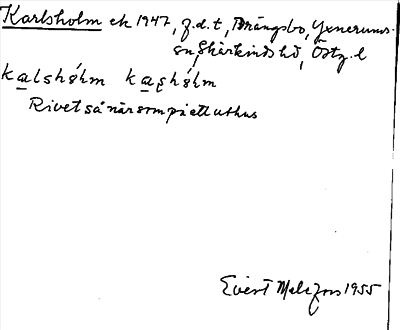 Karlsholm ek 1947, f.d.t, Drängsbo, Yxnerums
sn, Skärkinds hd, Östg. l
kalshólm kashólm
Rivet så när som på ett uthus
Evert Melefors 1955